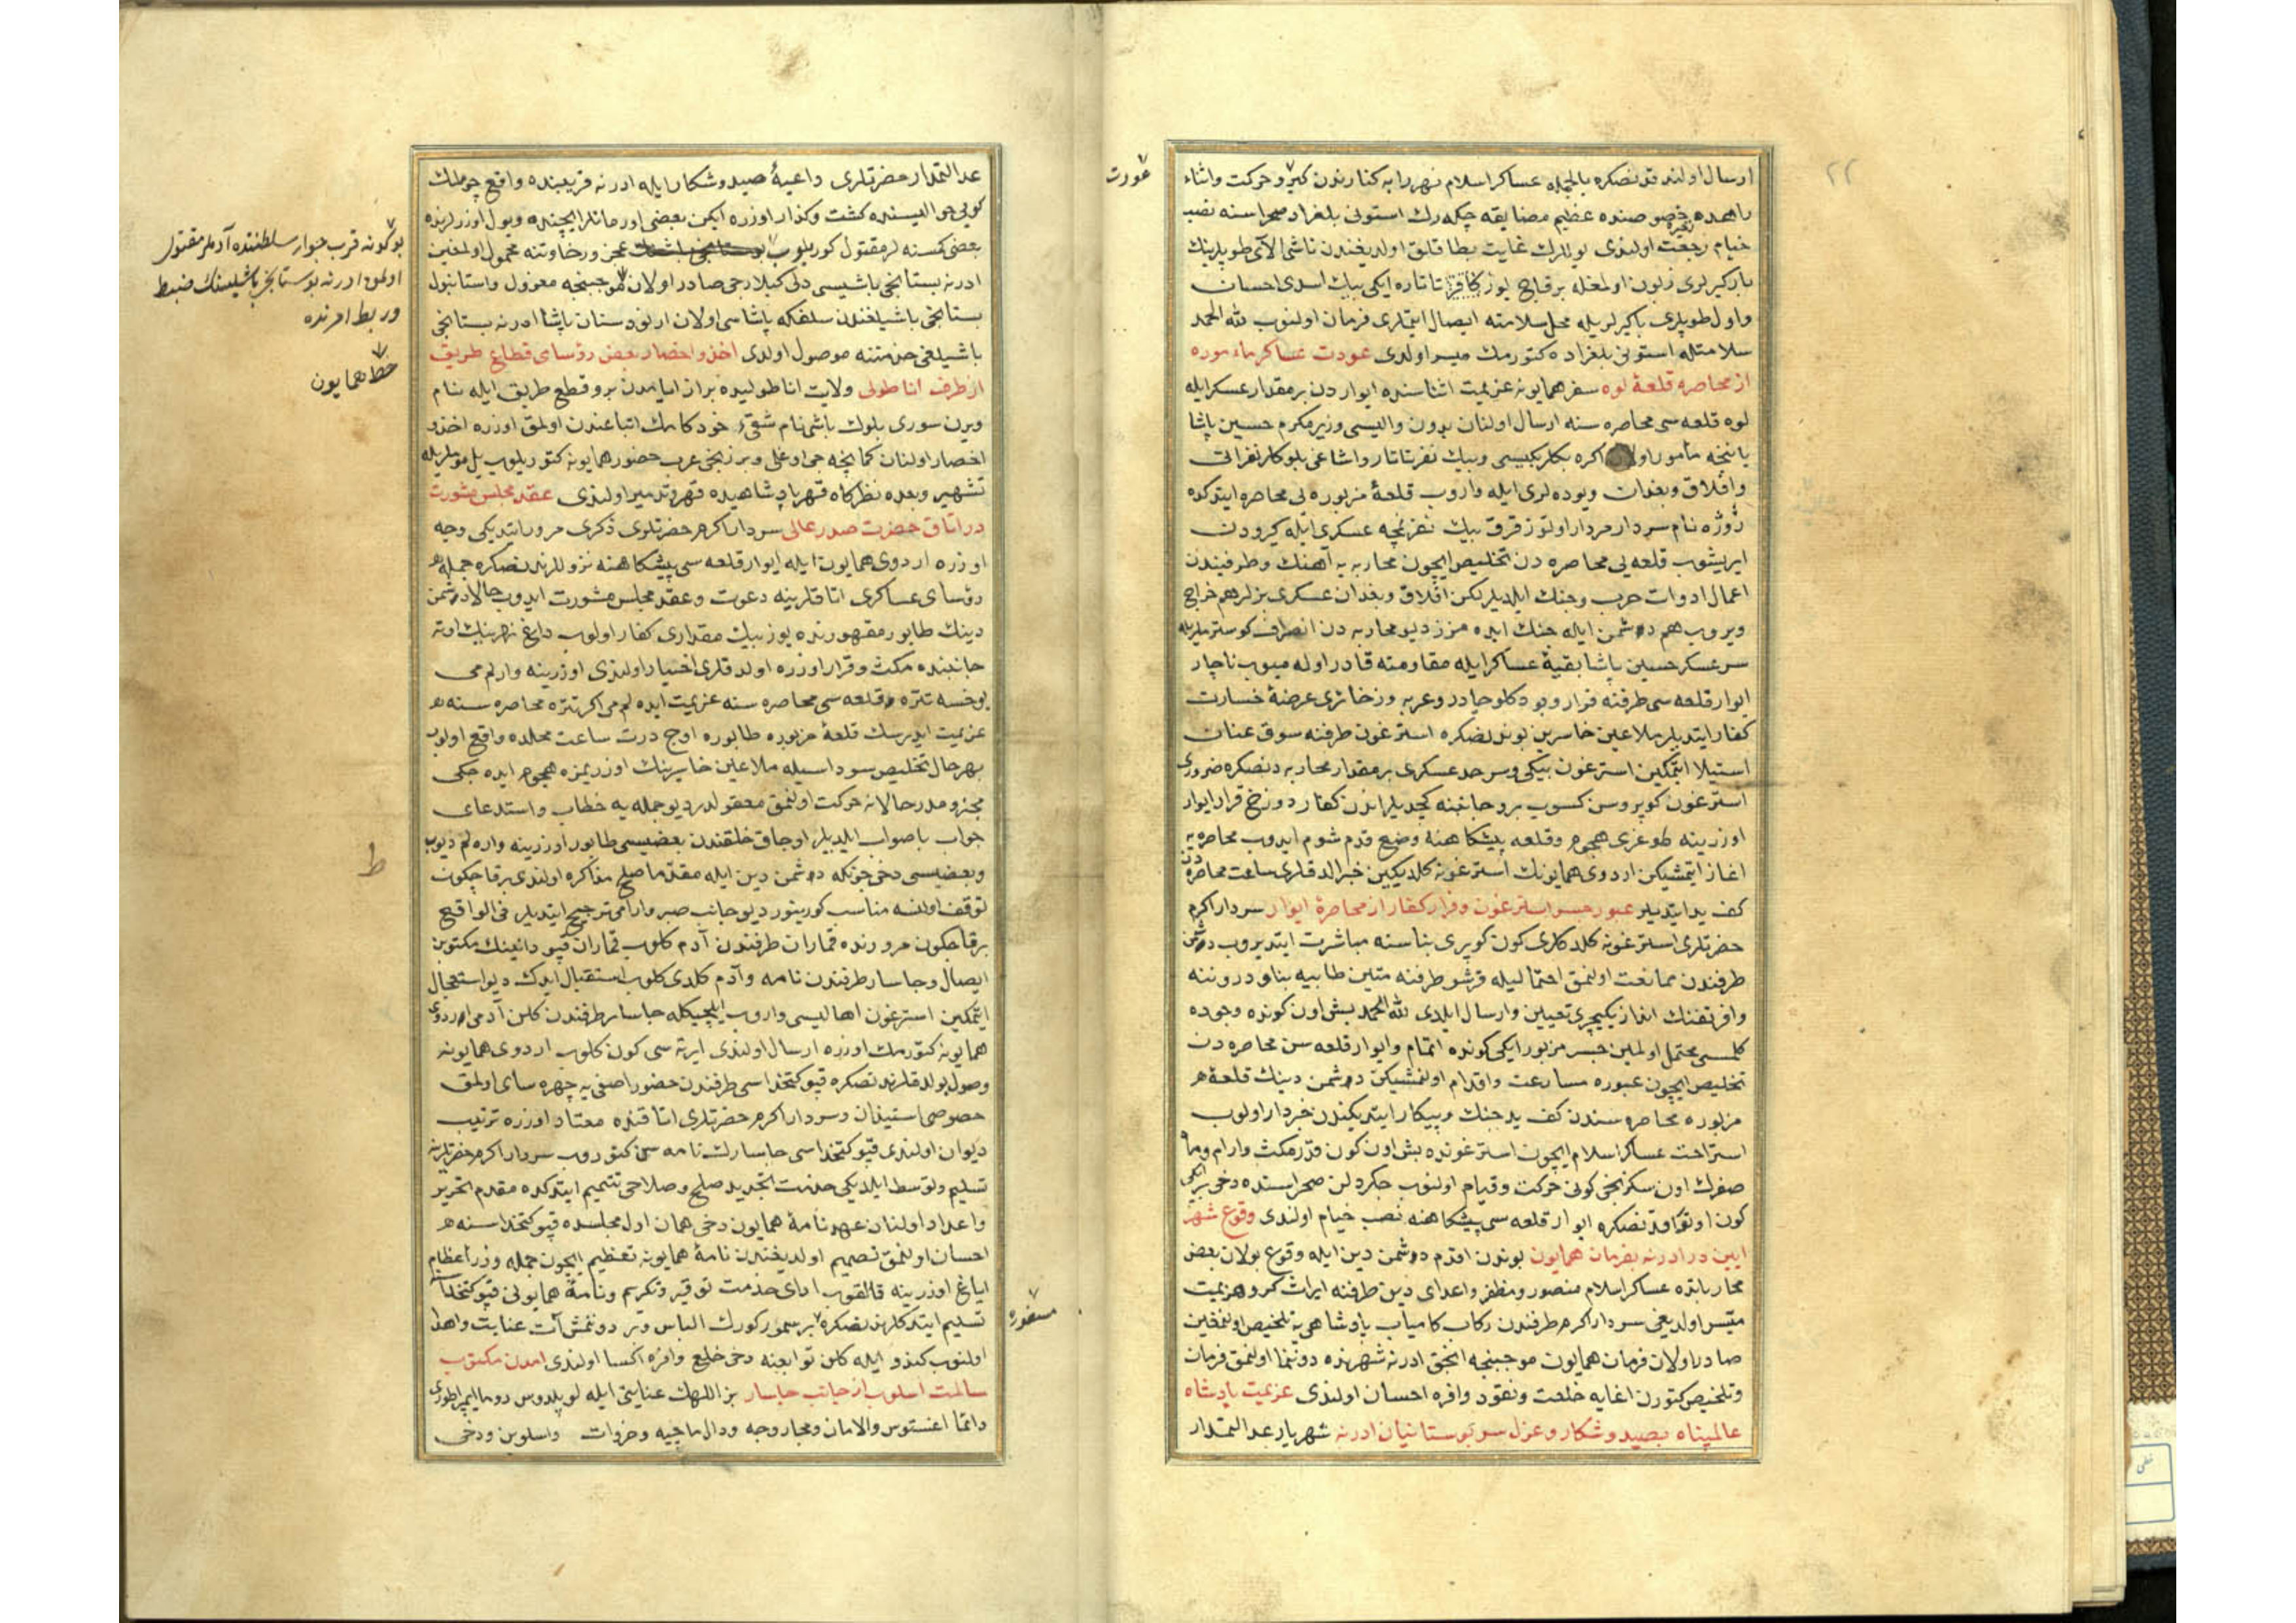 ٢٢
ارسال اولندقدنصكره بالجمله عساكر اسلام نهر رابه كنارندن كيرو حركت واثناء
راهده ذخيره خصوصنده عظيم مضايقه چكه رك استونی بلغراد صحراسنه نصب
خيام رجعت اولندی يوللرك غايت بطاقلق اولديغندن ناشی آلای طوپلرينك
باركيرلری زبون اولمغله برقاچ يوز كافر تاتاره ايكی بيك اسدی احسان
واول طوپلری باركيرلريله محل سلامته ايصال ايتملری فرمان اولنوب لله الحمد
سلامتله استونی بلغراده كتورمك ميسر اولدی عودت عساكر مأموره
از محاصرهٔ قلعهٔ لوه سفر همايونه عزيمت اثناسنده ايواردن بر مقدار عسكر ايله
لوه قلعه سی محاصره سنه ارسال اولنان بدون واليسی وزير مكرم حسين پاشا
ياننجه مأمور اولان اكره بكلربكيسی وبيك نفر تاتار واشاغی بلوكلر نفراتی
وافلاق وبغدان ويوده لری ايله واروب قلعهٔ مزبوره يی محاصره ايتدكده
ژوژه نام سردار مردار اوتوز قرق بيك نفر نمچه عسكری ايله كيرودن
ايريشوب قلعه يی محاصره دن تخليص ايچون محاربه يه آهنك وطرفيندن
اعمال ادوات حرب وجنك ايلديلر لكن افلاق وبغدان عسكری بزلر هم خراج
ويروب هم دوشمن ايله جنك ايده مزز ديو محاربه دن انصراف كوسترملريله
سرعسكر حسين پاشا بقيهٔ عساكر ايله مقاومته قادر اوله ميوب ناچار
ايوار قلعه سی طرفنه فرار وبودكلو چادر وعربه وذخائری عرضهٔ خسارت
كفار ايتديلر ملاعين خاسرين بوندنصكره استرغون طرفنه سوق عنان
استيلا ايتمكين استرغون بيكی وسرحد عسكری بر مقدار محاربه دنصكره ضروری
استرغون كوپروسن كسوب برو جانبنه كچديلر اندن كفار دوزخ قرار ايوار
اوزرينه طوغری هجوم وقلعه پيشكاهنه وضع قدم شوم ايدوب محاصره يه
اغاز ايتمشيكن اردوی همايونك استرغونه كلديكين خبر الدقلری ساعت محاصره دن
كف يد ايتديلر عبور جسر استرغون وفرار كفار از محاصرهٔ ايوار سردار اكرم
حضرتلری استرغونه كلدكلری كون كوپری بناسنه مباشرت ايتديروب دوشمن
طرفندن ممانعت اولنمق احتماليله قرشو طرفنه متين طابيه بنا ودروننه
وافر تفنك انداز يكيچری تعيين وارسال ايلدی لله الحمد بش اون كونده وجوده
كلمسی محتمل اولمين جسر مزبور ايكی كونده اتمام وايوار قلعه سن محاصره دن
تخليص ايچون عبوره مسارعت واقدام اولنمشيكن دوشمن دينك قلعهٔ
مزبوره محاصره سندن كف يد جنك وپيكار ايتديكندن خبردار اولوب
استراحت عساكر اسلام ايچون استرغونده بش اون كون قدر مكث وارام وماه
صفرك اون سكزنجی كونی حركت وقيام اولنوب جكردلن صحراسنده دخی بر ايكی
كون اوتوراقدنصكره ايوار قلعه سی پيشكاهنه نصب خيام اولندی وقوع شهر
ايين در ادرنه بفرمان همايون بوندن اقدم دوشمن دين ايله وقوع بولان بعض
محاربلرده عساكر اسلام منصور ومظفر واعدای دين طرفنه ايراث كسر وهزيمت
ميسر اولديغی سردار اكرم طرفندن ركاب كامياب پادشاهی يه تلخيص اولنمغين
صادر اولان فرمان همايون موجبنجه انجق ادرنه شهرنده دوننما اولنمق فرمان
وتلخيص كتورن اغايه خلعت ونقود وافره احسان اولندی عزيمت پادشاه
عالمپناه بصيد وشكار وعزل سر بوستانيان ادرنه شهريار عدالتمدار
عورت
عدالتمدار حضرتلری داعيهٔ صيد وشكار ايله ادرنه قربنده واقع چوملك
كويی حواليسنده كشت وكذار اوزره ايكن بعضی اورمانلر ايچنده ويول اوزرلرنده
بعض كسنه لر مقتول كوريلوب بوستانجی باشينك عجز ورخاوتنه محمول اولمغين
ادرنه بستانجی باشيسی دلی كيلارجی صادر اولان موجبنجه معزول واستانبول
بستانجی باشيلغندن سلفكه پاشاسی اولان ارنود سنان پاشا ادرنه بستانجی
باشيلغی خدمتنه موصول اولدی اخذ واحضار بعض رؤسای قطاع طريق
از طرف اناطولی ولايت اناطوليده بر از ايامدن برو قطع طريق ايله نام
ويرن سوری بلوك باشی نام شقیء خودكامك اتباعندن اولمق اوزره اخذ و
احضار اولنان كمانچه جی اوغلی وبرزنجی عرب حضور همايونه كتوريلوب
تشهير وبعده نظركاه قهر پادشاهيده قهر وتدمير اولندی عقد مجلس مشورت
در اتاق حضرت صدر عالی سردار اكرم حضرتلری ذكری مرور ايتديكی وجه
اوزره اردوی همايون ايله ايوار قلعه سی پيشكاهنه نزوللرندنصكره جمله
رؤسای عساكری اتاقلرينه دعوت وعقد مجلس مشورت ايدوب حالا دوشمن
دينك طابور مقهورنده يوز بيك مقداری كفار اولوب داغ نهرينك اوته
جانبنده مكث وقرار اوزره اولدقلری اخبار اولندی اوزرينه وارلم می
يوخسه نتره قلعه سی محاصره سنه عزيمت ايده لم می اكر نتره محاصره سنه
عزيمت ايدرسك قلعهٔ مزبوره طابوره اوچ درت ساعت محلده واقع اولوب
بهرحال تخليص سوداسيله ملاعين خاسرينك اوزريمزه هجوم ايده جكی
مجزومدر حالا نه حركت اولنمق معقولدر ديو جمله يه خطاب واستدعای
جواب باصواب ايلديلر اوجاق خلقندن بعضيسی طابور اوزرينه واره لم ديوب
وبعضيسی دخی چونكه دوشمن دين ايله مقدما صلح مذاكره اولندی برقاچ كون
توقف اولنسه مناسب كورينور ديو جانب صبر وارامی ترجيح ايتديلر فی الواقع
برقاچ كون مرورنده قماران طرفندن آدم كلوب قماران قپودانينك مكتوبن
ايصال وجاسار طرفندن نامه وآدم كلدی كلوب استقبال ايدك ديو استعجال
ايتمكين استرغون اهاليسی واروب ايلچيكله جاسار طرفندن كلن آدمی اردوی
همايونه كتورمك اوزره ارسال اولندی ايرته سی كون كلوب اردوی همايونه
وصول بولدقلرندنصكره قپو كتخداسی طرفندن حضور اصفی يه چهره سای اولمق
خصوصی استيذان وسردار اكرم حضرتلری اتاقنده معتاد اوزره ترتيب
ديوان اولندی قپو كتخداسی جاسارك نامه سن كتوروب سردار اكرم حضرتلرينه
تسليم وتوسط ايلديكی خدمت تجديد صلح وصلاحی تتميم ايتدكده مقدم تحرير
واعداد اولنان عهدنامهٔ همايون دخی همان اول مجلسده قپو كتخداسنه
احسان اولنمق تصميم اولديغندن نامهٔ همايونه تعظيم ايچون جمله وزراء عظام
اياغ اوزرينه قالقوب ادای خدمت توقير وتكريم ونامهٔ همايونی قپو كتخداسنه
تسليم ايتدكلرندنصكره بر سمور كورك الباس وبر دونمش آت عنايت واهدا
اولنوب كندو ايله كلن توابعنه دخی خلع وافره اكسا اولندی امدن مكتوب
سالمت اسلوب از جانب جاسار بز اللهك عنايتی ايله لوپلدوس روما ايمپراطوری
دائما اغستوس والامان ومجار وچه ودالماچيه وخروات واسلوين ودخی
بو كونه قرب جوار سلطنتده آدملر مقتول
اولمق ادرنه بوستانجی باشيسنك ضبط
وربط امرنده
خط همايون
ط
مسفوره